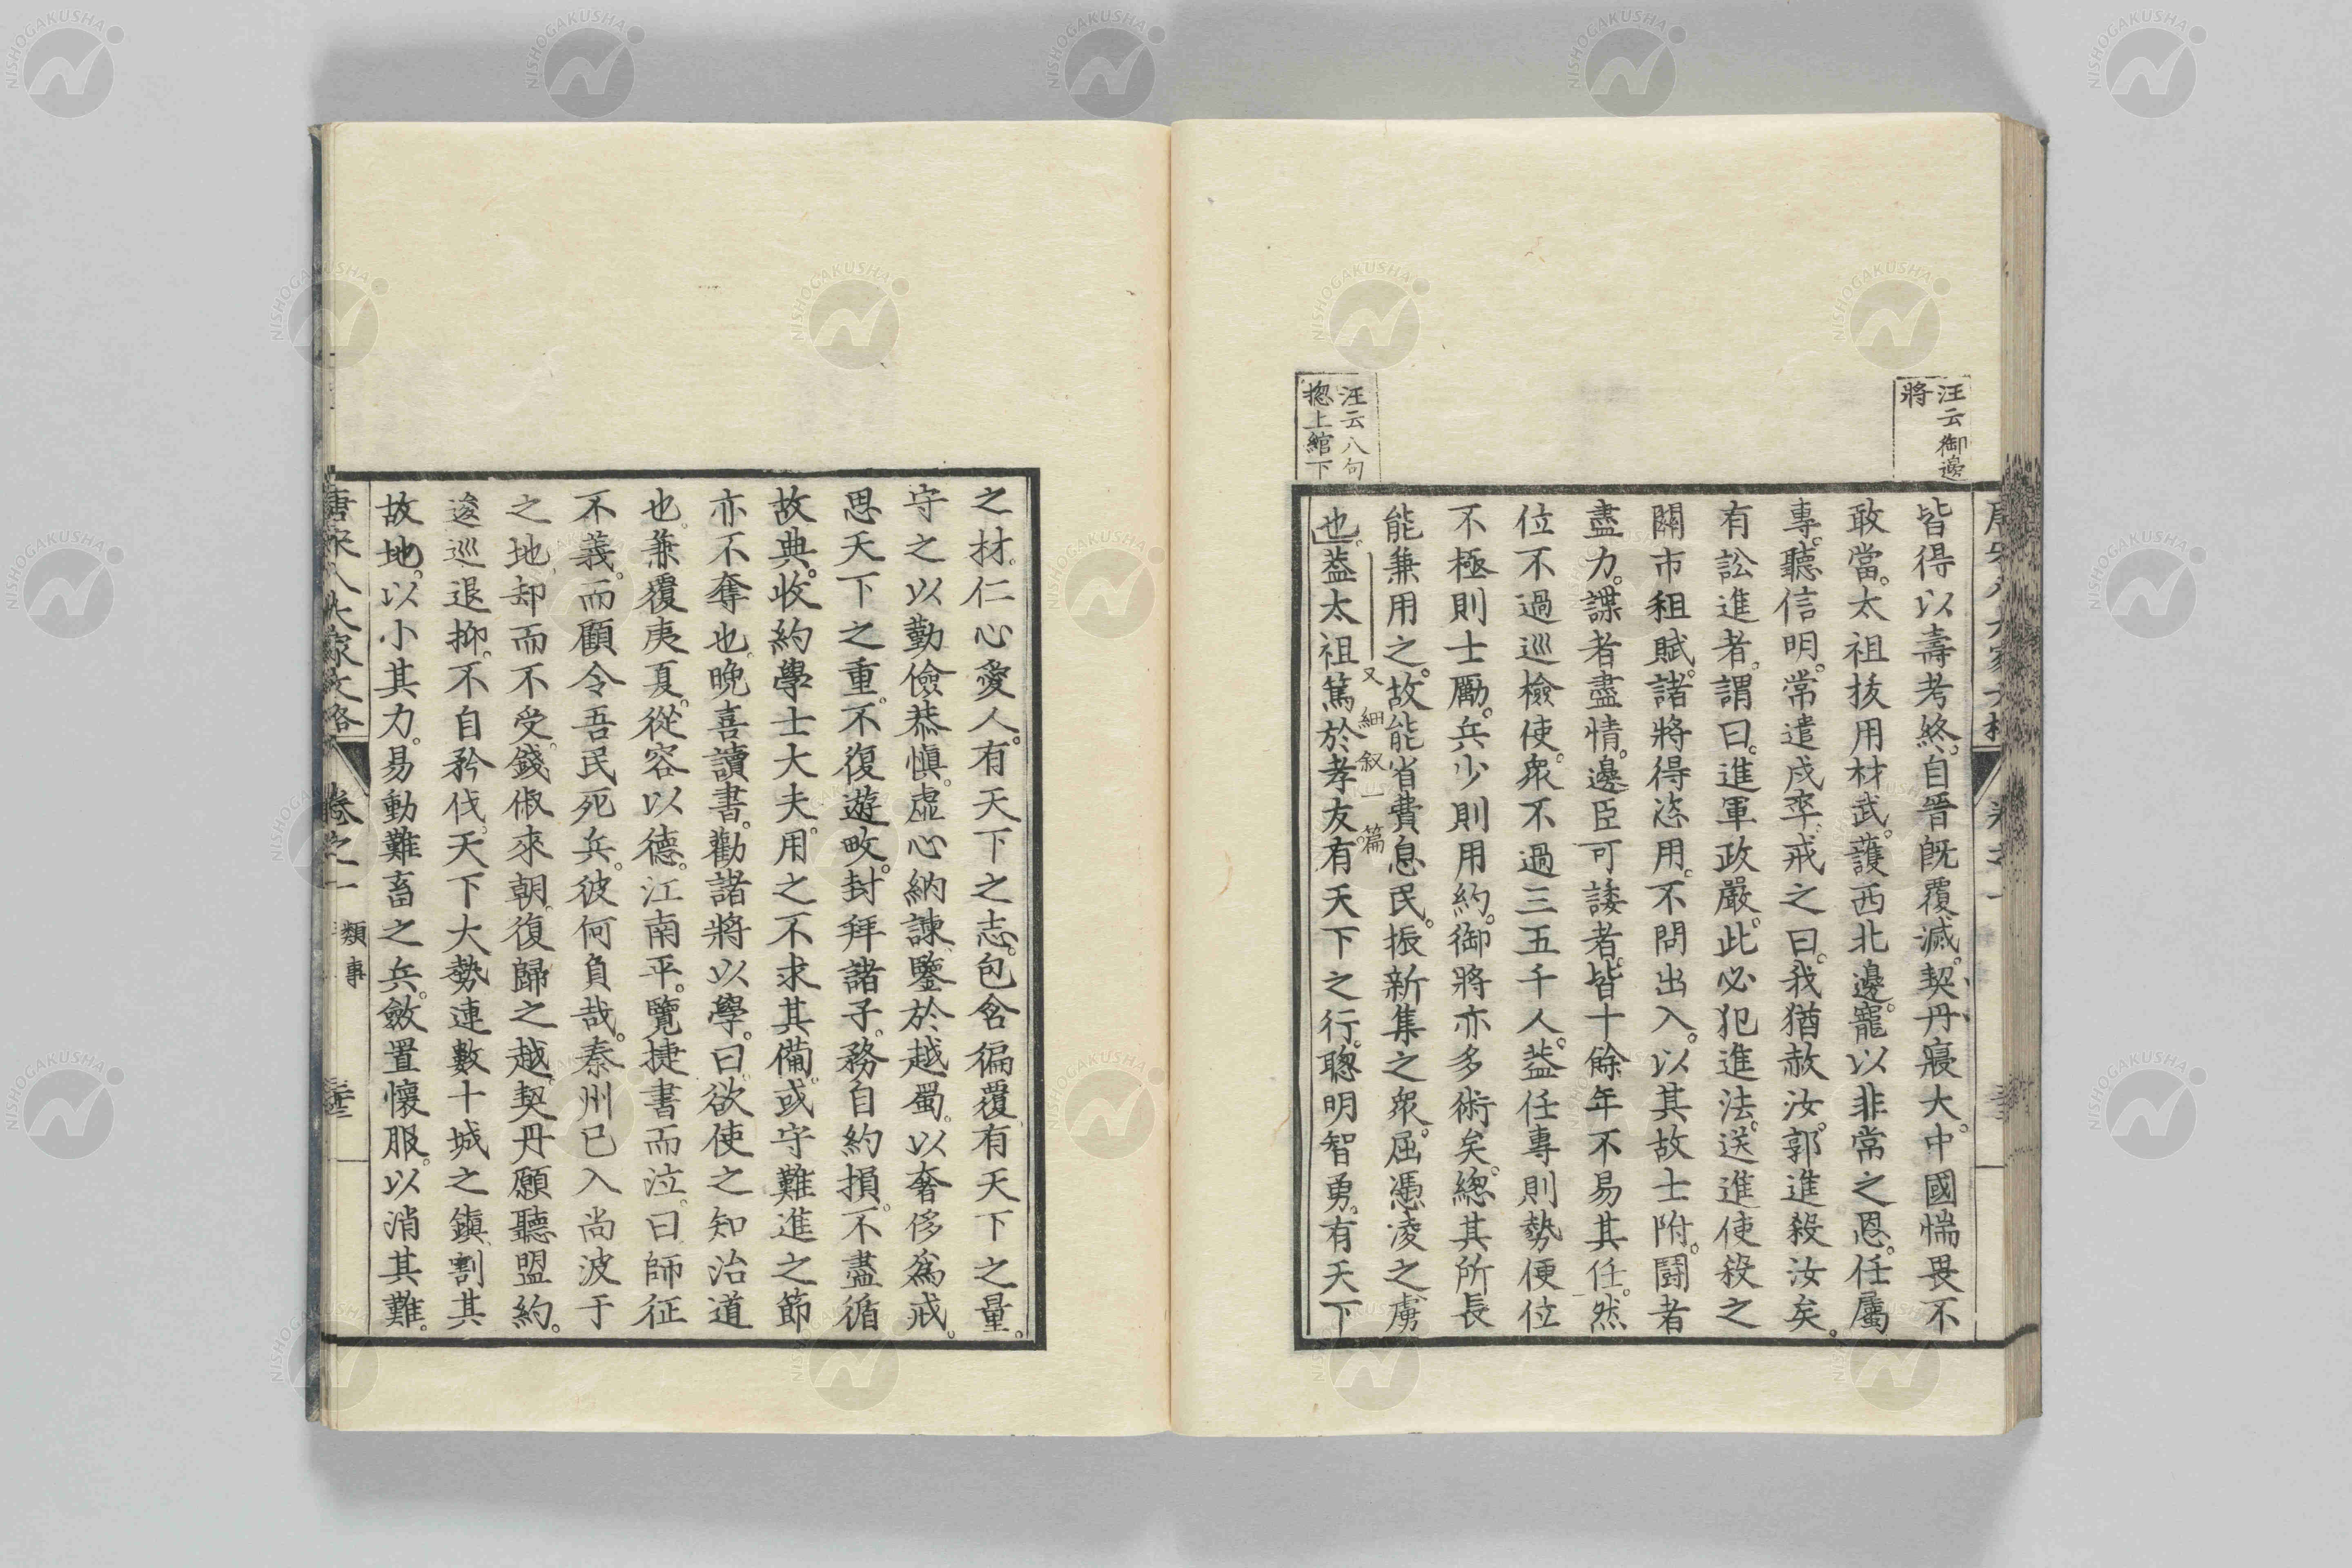 汪云御邊
將
皆得以壽考終。自晉既覆滅。契丹寖大。中國惴畏不
敢當。太祖拔用材武。護西北邊。寵以非常之恩。任屬
專。聽信明。常遣戍卒。戒之曰。我猶赦汝。郭進殺汝矣。
有訟進者。謂曰。進軍政嚴。此必犯進法。送進使殺之
關市租賦。諸將得恣用。不問出入。以其故士附。鬪者
盡力。諜者盡情。邊臣可諉者。皆十餘年不易其任。然
位不過巡檢使。眾不過三五千人。葢任專則勢便位
不極則士勵。兵少則用約。御將亦多術矣。總其所長
能兼用之。故能省費息民。振新集之眾。屈憑凌之虜
又細叙一篇
汪云八句
揔上綰下
也。葢太祖篤於孝友。有天下之行。聰明智勇。有天下
之材。仁心愛人。有天下之志。包含徧覆。有天下之量。
守之以勤儉恭愼。虛心納諫。鑒於越蜀。以奢侈爲戒。
思天下之重。不復遊畋。封拜諸子。務自約損。不盡循
故典。收約學士大夫。用之不求其備。或守難進之節
亦不奪也。晚喜讀書。勸諸將以學。曰欲使之知治道
也。兼覆夷夏。從容以德。江南平。覽捷書而泣。曰師征
不義。而顧令吾民死兵。彼何負哉。秦州已入尚波于
之地。却而不受。錢俶來朝。復歸之越。契丹願聽盟約。
逡巡退抑。不自矜伐。天下大勢連數十城之鎮。割其
故地。以小其力。易動難畜之兵。斂置懷服。以消其難。
唐宋八大家文格
卷之一
類事